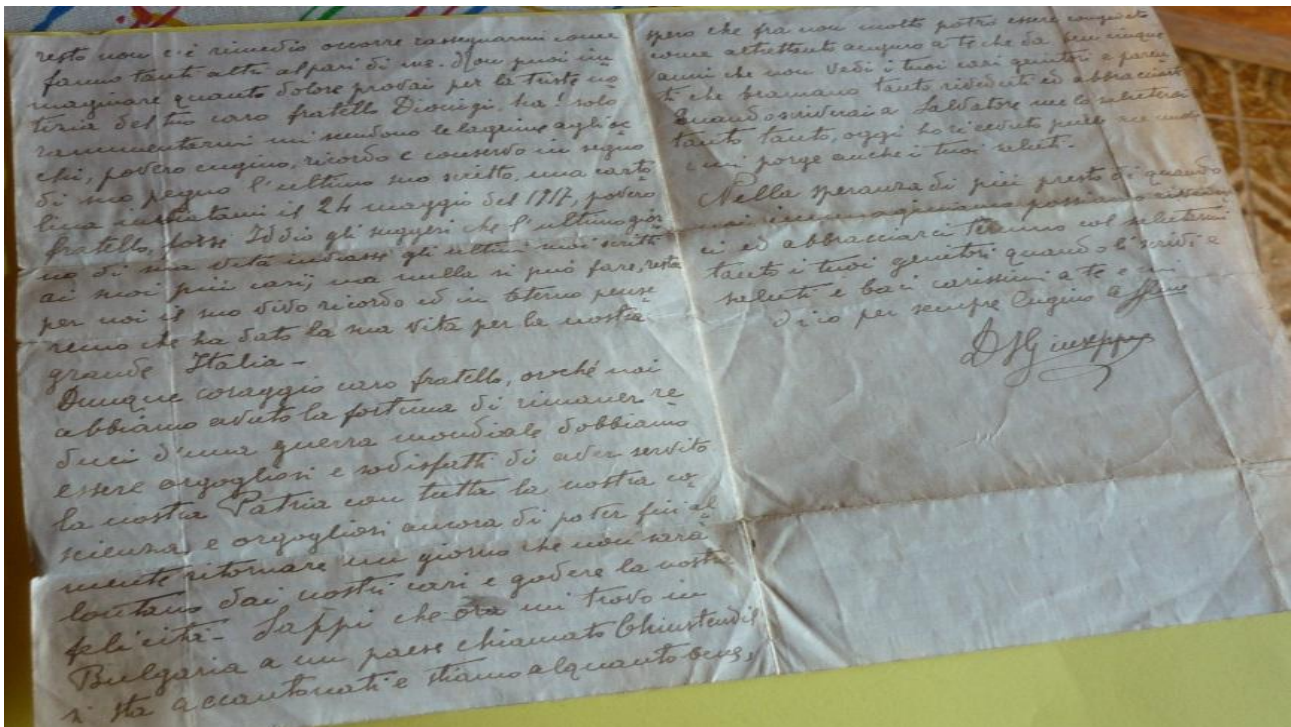 resto non c'è rimedio occorre rassegnarmi come
fanno tanti altri al pari di me. Non puoi im=
maginare quanto dolore provai per la triste no=
tizia del tuo caro fratello Dionigi, ha! solo
rammentarmi mi scendono le lagrime agli oc=
chi, povero cugino, ricordo e conservo in segno
di suo pegno l'ultimo suo scritto, una carto=
lina inviatami il 24 maggio del 1917, povero
fratello, forse Iddio gli suggerì che l'ultimo gior=
no di sua vita inviasse gli ultimi suoi scritti
ai suoi più cari; ma nulla si può fare, resta
per noi il suo vivo ricordo ed in eterno pense=
remo che ha dato la sua vita per la nostra
grande Italia -
Dunque coraggio caro fratello, orché noi
abbiamo avuto la fortuna di rimaner re=
duci d'una guerra mondiale dobbiamo
essere orgogliosi e sodisfatti di aver servito
la nostra Patria con tutta la nostra co=
scienza e orgogliosi ancora di poter final=
mente ritornare un giorno che non sarà
lontano dai nostri cari e godere la nostra
felicità - Sappi che ora mi trovo in
Bulgaria a un paese chiamato Chiustendil
si sta accantonati e stiamo alquanto bene,
spero che fra non molto potrò essere congedato
come altrettanto auguro a te che da ben cinque
anni che non vedi i tuoi cari genitori e paren=
ti che bramano tanto rivederti ed abbracciarti
Quando scriverai a Salvatore me lo saluterai
tanto tanto, oggi ho ricevuto pure
e mi porge anche i tuoi saluti -
Nella speranza di più presto di quando
noi immaginiamo possiamo
ci ed abbracciarci termino col salutarmi
tanto i tuoi genitori quando l'scrivi e
saluti e baci carissimi a te e mi
dico per sempre Cugino
Giuseppe